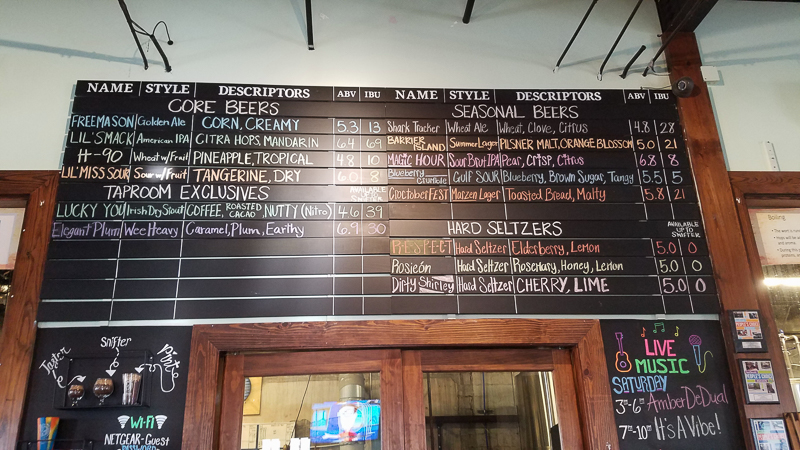 NAME STYLE DESCRIPTORS ABV IBU
CORE BEERS
FREEMASON Golden Ale CORN, CREAMY 5.3 13
LIL' SMACK American IPA CITRA HOPS, MANDARIN 6.4 69
H-90 Wheat w/Fruit PINEAPPLE, TROPICAL 4.8 10
LIL' MISS SOUR Sour w/Fruit TANGERINE, DRY 6.0 8
TAPROOM EXCLUSIVES
LUCKY YOU Irish Dry Stout COFFEE, ROASTED CACAO, NUTTY (Nitro) 4.6 39
Elegant Plum Wee Heavy Caramel, Plum, Earthy 6.9 30
NAME STYLE DESCRIPTORS ABV IBU
SEASONAL BEERS
Shark Tracker Wheat Ale Wheat, Clove, Citrus 4.8 28
BARRIER ISLAND Summer Lager PILSNER MALT, ORANGE BLOSSOM 5.0 21
MAGIC HOUR Sour Brut IPA Pear, Crisp, Citrus 6.8 8
Blueberry Crumble GULF SOUR Blueberry, Brown Sugar, Tangy 5.5 5
CroctoberFEST Marzen Lager Toasted Bread, Malty 5.8 21
HARD SELTZERS
AVAILABLE UP TO SNIFTER
Hard Seltzer Elderberry, Lemon 5.0 0
Rosieón Hard Seltzer Rosemary, Honey, Lemon 5.0 0
Dirty Shirley Hard Seltzer CHERRY, LIME 5.0 0
Taster
Snifter
Pint
Wi-Fi
NETGEAR-Guest
PASSWORD
LIVE
MUSIC
SATURDAY
3PM-6PM AmberDeDual
7PM-10PM It's A Vibe!